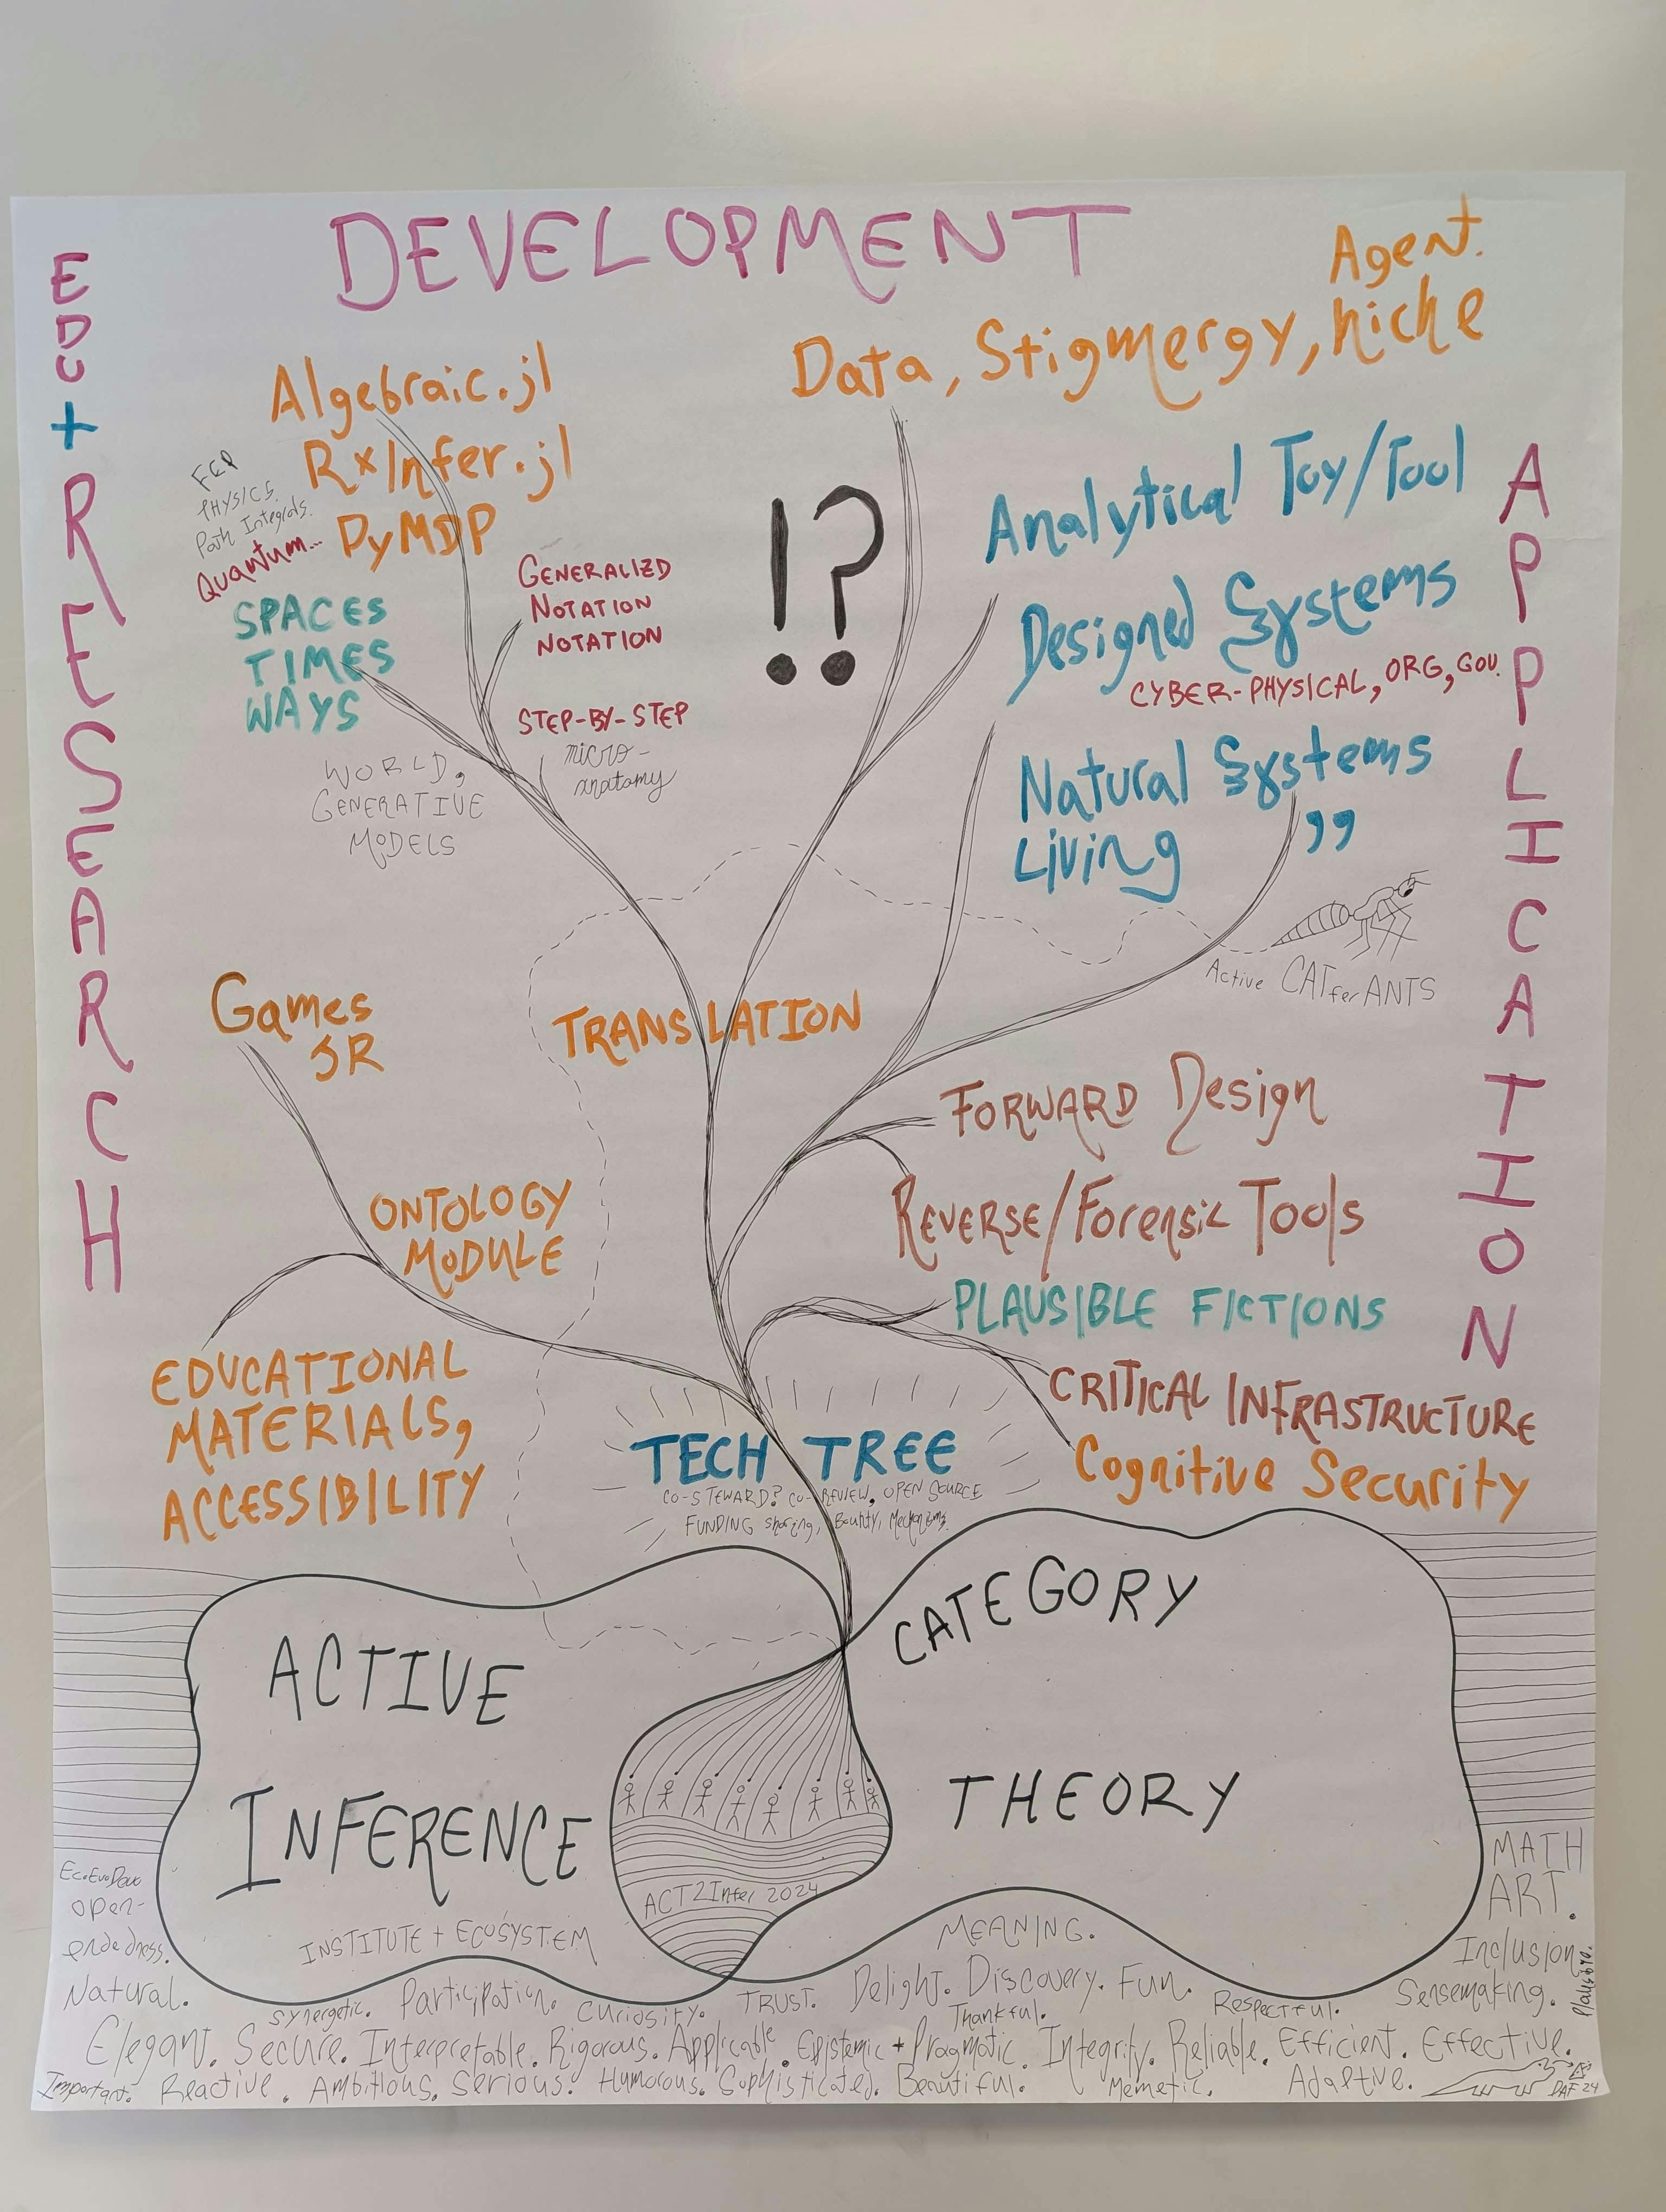 DEVELOPMENT
EDU
+
RESEARCH
APPLICATION
Agent.
Data, Stigmergy, Niche
Algebraic.jl
RxInfer.jl
PyMDP
FEP
PHYSICS.
Path Integrals.
Quantum...
SPACES
TIMES
WAYS
WORLD,
GENERATIVE
MODELS
GENERALIZD
NOTATION
NOTATION
STEP-BY-STEP
micro-
anatomy
!?
Analytical Toy/Tool
Designed Systems
CYBER-PHYSICAL, ORG, GOV.
Natural Systems
Living ,,
Active CAT for ANTS
Games
JR
TRANSLATION
ONTOLOGY
MODULE
EDUCATIONAL
MATERIALS,
ACCESSIBILITY
FORWARD Design
REVERSE/Forensic Tools
PLAUSIBLE FICTIONS
CRITICAL INFRASTRUCTURE
Cognitive Security
TECH TREE
CO-STEWARD? CO-REVIEW, OPEN SOURCE
FUNDING sharing, Bounty, Mechanisms.
ACTIVE
INFERENCE
CATEGORY
THEORY
ACT2Infer 2024
INSTITUTE + ECOSYSTEM
EcoEvoDevo
open-
endedness.
Natural.
MATH
ART.
Inclusion.
Sensemaking.
MEANING.
synergetic. Participation. Curiosity. TRUST. Delight. Discovery. Fun.
Thankful. Respectful.
Elegant. Secure. Interpretable. Rigorous. Applicable. Epistemic + Pragmatic. Integrity. Reliable. Efficient. Effective.
Important. Reactive. Ambitious. Serious. Humorous. Sophisticated. Beautiful. Memetic. Adaptive.
DAF 24